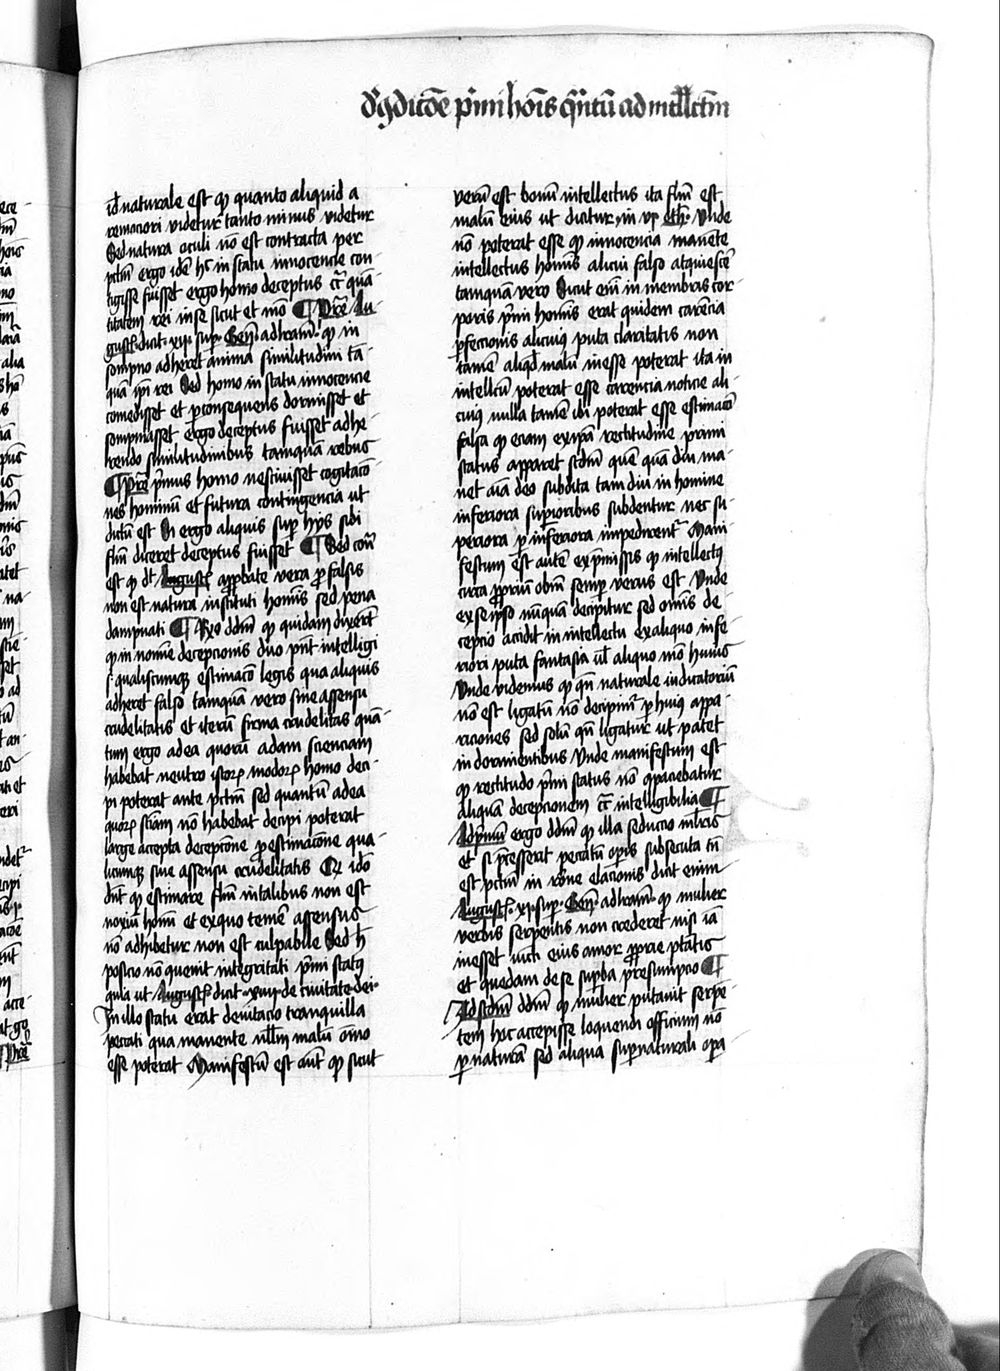 dꝰ ꝯdicōe pͥmi hoīs qͣntū ad intllctm̄
id naturale est qꝫ quanto aliquid a
remociori videtur tanto minus videtur
Sed natura oculi nō est contracta per
pctm̄ ergo idē hͦ in statu innocencie con-
tigisse fuisset ergo homo deceptus cͣ quā
titatem rei in se sicut et mō ¶ Pret̄ Au
gusti᷎ dicit xij sup Gen̄ ad lram̄ qꝫ in
sompno adheret anima similitudini tā-
quā ipi rei Sed homo in statu innocencie
comedisset et ꝑ consequens dormisset et
sompniasset ergo deceptus fuisset adhe
rendo similitudinibus tamquā rebus
¶ Pret̄ pͥmus homo nescivisset cogitacō
nes hominū et futura contingencia ut
dictū est Si ergo aliquis suꝑ hijs sibi
flm̄ diceret deceptus fuisset ¶ Sed conͣ
est qꝫ dt Augusti᷎ approbate vera ꝓ falsis
non est natura instituti homīs sed pena
dampnati ¶ Rn̄o dd̄m qꝫ quidam dixerūt
qꝫ in nomīe decepcionis duo pn̄t intelligi
s qualiscumqꝫ estimacō legis qua aliquis
adheret falso tamquā vero sine assensu
crudelitatis et iterū firma crudelitas quā-
tum ergo ad ea quorū adam scienciam
habebat neutro istoꝝ modoꝝ homo deci-
pi poterat ante pctm̄ sed quantū ad ea
quoꝝ sciam̄ nō habebat decipi poterat
large accepta decepcōne ꝓ estimacōne qua-
licumqꝫ sine assensu crudelitatis Et idō
dn̄t qꝫ estimare flm̄ in talibus non est
noxiū homī et ex quo temē assensus
nō adhibetur non est culpabile Sed hͨ
posicio nō quenit integritati pͥmi statꝰ
quia ut Augusti᷎ dicit xiiij de civitate dei
In illo statu erat devitacio tranquilla
peccati qua manente nullm̄ malū om̄o
esse poterat Manifestū est aut̄ qꝫ sicut
verū est bonū intellectus ita flm̄ est
malū eius ut dicitur in vjͦ eth Unde
nō poterat esse qꝫ innocencia manēte
intellectus homīs alicui falso acquiescēt
tamquam vero Sicut enī in membris cor-
poris pͥmi homīs erat quidem carēcia
ꝑfeccionis alicuiꝰ puta claritatis non
tamē aliqd malū inesse poterat ita in
intellcū poterat esse carencia noticie ali-
cuiꝰ nulla tamē ibi poterat esse estimacō
falsa qꝫ eciam ex ipā rectitudine primi
status apparet scdm̄ quē quā diu ma-
net aīa deo subdita tam diu in homine
inferiora supioribus subdentur nec su-
periora ꝑ inferiora impedirentͬ Mani-
festum est autē ex pͥmissis qꝫ intellectꝰ
circa ꝓpriū obm̄ semp verus est Unde
ex se ipso nūquam decipitur sed omīs de-
cepcio accidit in intellectu ex aliquo infe-
riori puta fantasia vl aliquo mō huius
Unde videmus qꝫ qn̄ naturale iudicatoriū
nō est ligatū nō decipimͬ ꝑ huiꝰ appa-
riciones sed solū qn̄ ligatur ut patet
in dormientibus Unde manifestum est
qꝫ rectitudo pͥmi status nō ꝯpaciebatur
aliquā decepcionem cͣ intelligibilia ¶
Ad pͥmū ergo dd̄m qꝫ illa seducio mlͥeris
et si pͥcesserat peccatū opis subsecuta tn̄
est pctm̄ in rōne elacionis dicit enim
Augusti᷎ xj sup Gen̄ ad lram̄ qꝫ mulier
verbis serpentis non crederet nisi iā
inesset menti eius amor ꝓprie ptātis
et quedam de se supba pͥsumpcio ¶
Ad scdm̄ dd̄m qꝫ mulier putauit serpe-
tem hoc accepisse loquendi officium nō
ꝑ naturā sed aliqua supnaturali opa-